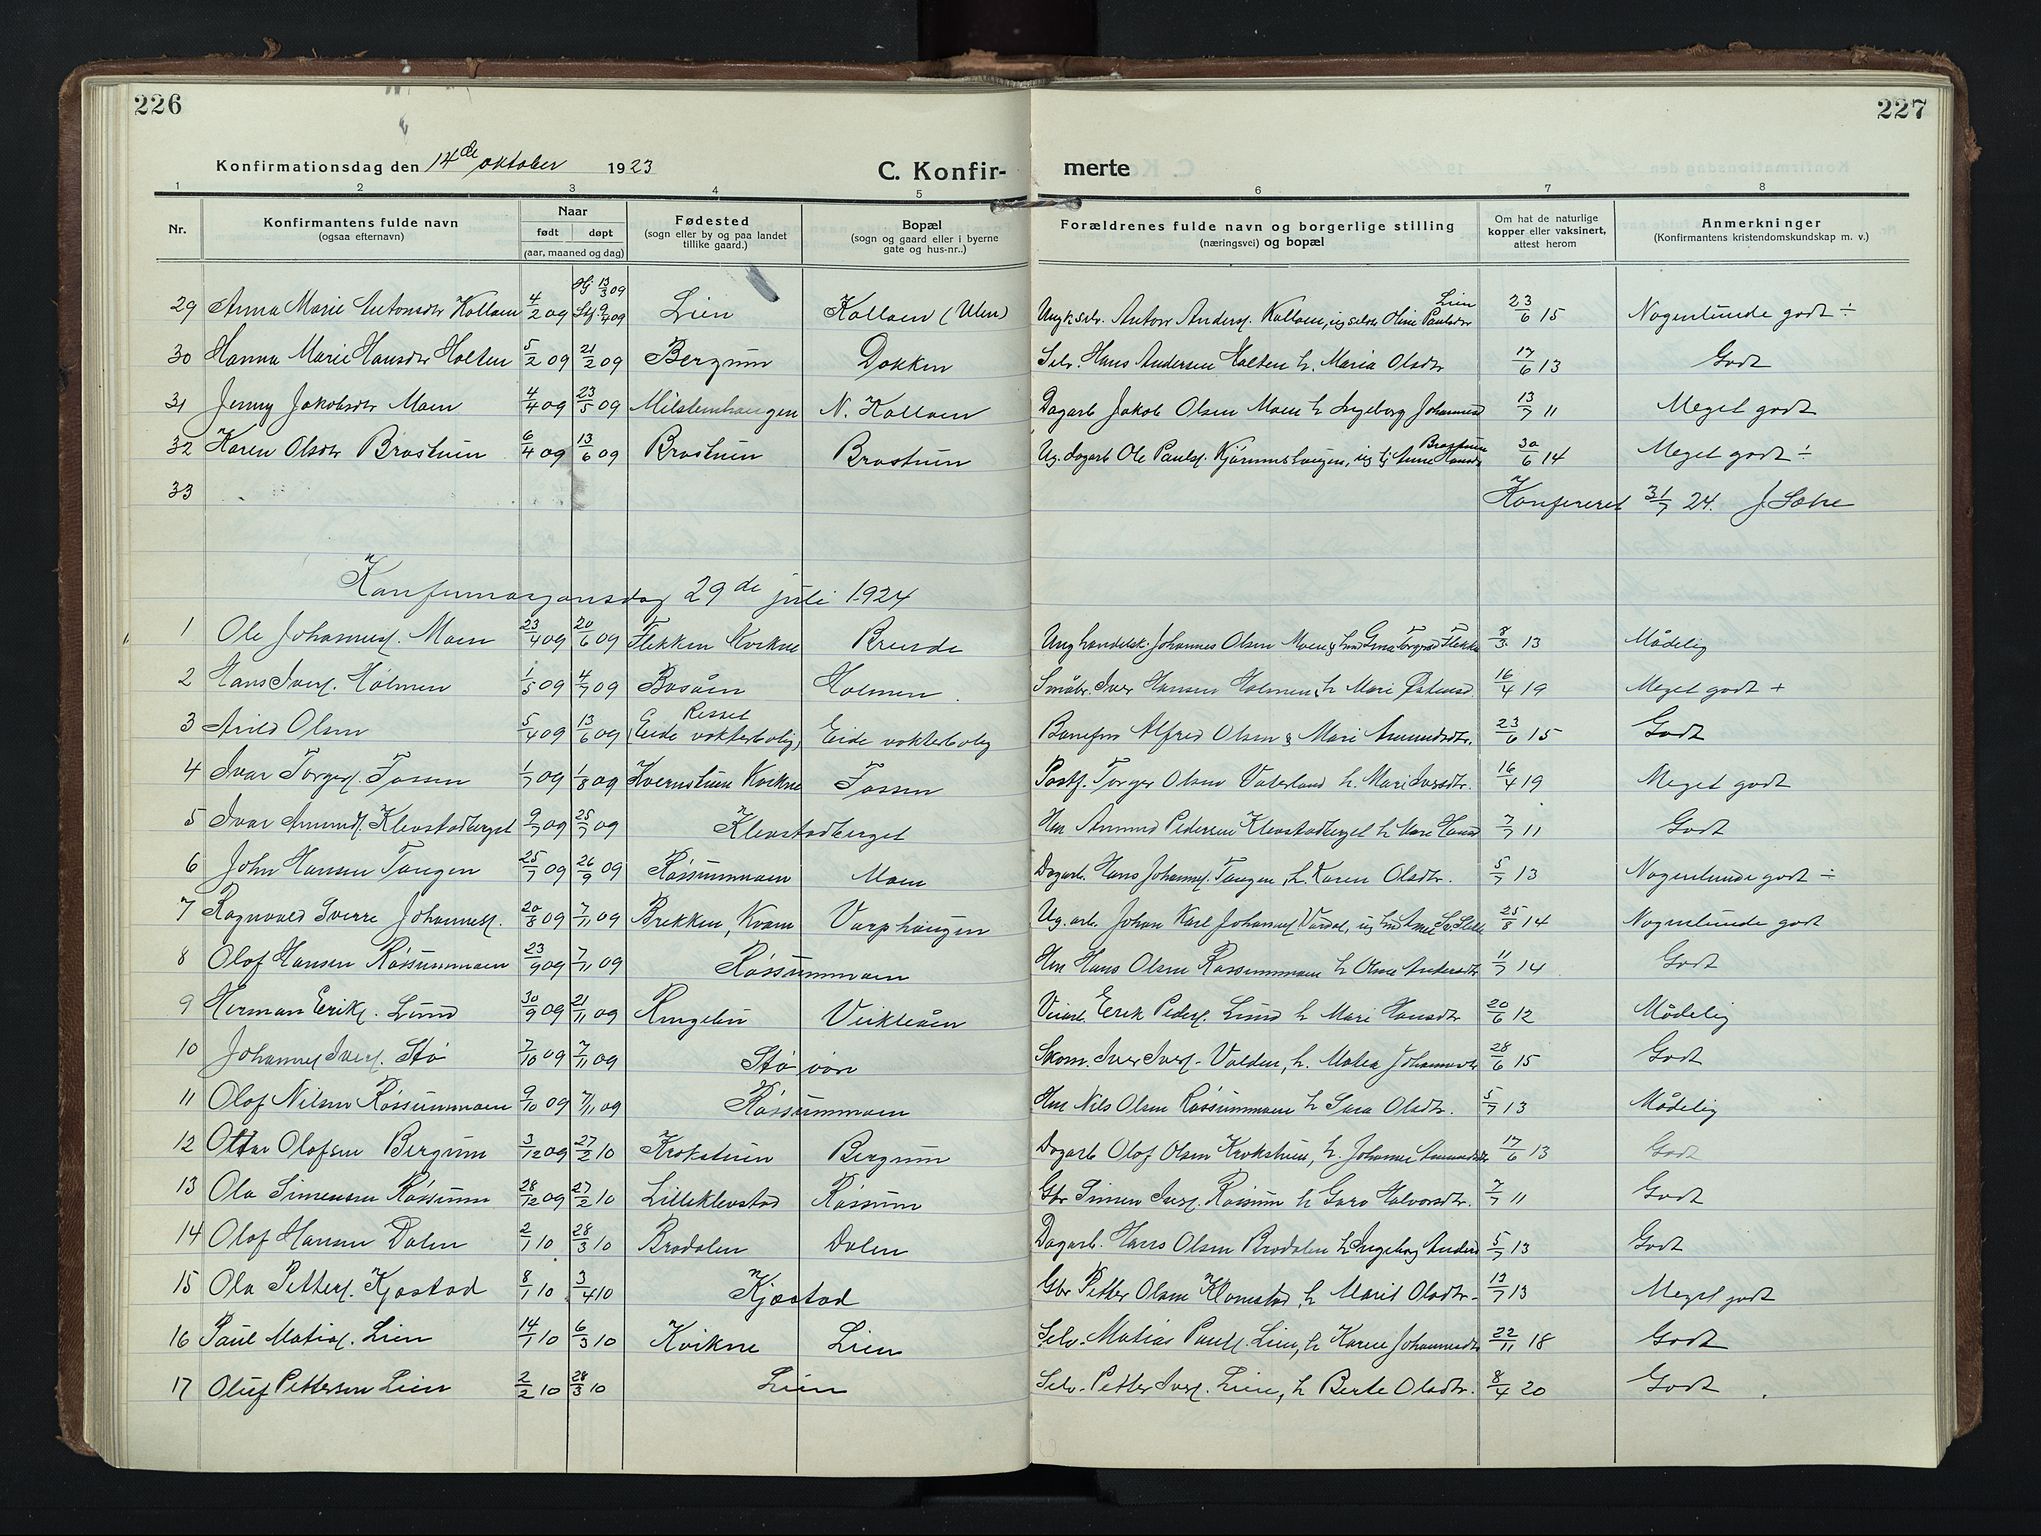 226
227
Konfirmationsdag den 14de oktober 1923
C. Konfir-
merte
1 2 3 4 5 6 7 8
Nr. Konfirmantens fulde navn (ogsaa efternavn) Naar født døpt (aar, maaned og dag) Fødested (sogn eller by og paa landet tillike gaard.) Bopæl (sogn og gaard eller i byerne gate og hus-nr..) Forældrenes fulde navn og borgerlige stilling (næringsvei) og bopæl Om hat de naturlige kopper eller vaksinert, attest herom Anmerkninger (Konfirmantens kristendomskundskap m. v.)
29 Anna Marie Antonsdtr Kolloen 4/2 09 Hj 13/3 09 Stf 9/4 09 Lien Kolloen (Ulen) Ungk selv. Anton Anders. Kolloen, ug selvst Oline Paulsdtr Lien 23/6 15 Nogenlunde godt ÷
30 Hanna Marie Hansdtr Holten 5/2 09 21/2 09 Bergum Dokken Selv. Hans Andersen Holten h. Maria Olsdtr 17/6 13 Godt
31 Jenny Jakobsdtr Moen 4/4 09 23/5 09 Milstenhaugen N. Kolloen Dagarb Jakob Olsen Moen h Ingeborg Johannesd 13/7 11 Meget godt
32 Karen Olsdtr Brostuen 6/4 09 13/6 09 Brostuen Brostuen Ug. dagarb Ole Pauls. Kjørumshaugen, ug tj Anne Hansdr Brostuen 30/6 14 Meget godt ÷
33 Konfereret 31/7 24. J. Sætre
Konfirmasjonsdag 29de juli 1924
1 Ole Johannes. Moen 23/4 09 20/6 09 Flekken Kvikne Breide Ung handelsk. Johannes Olsen Moen & Flekke 8/3 13 Mådelig
2 Hans Ivers. Holmen 1/5 09 4/7 09 Bosåen Holmen Småbr. Iver Hansen Holmen h Mari Østensd. 16/4 19 Meget godt +
3 Arild Olsen 5/4 09 13/6 09 Resset (Eide vokterbolig) Eide vokterbolig Banefm Alfred Olsen & Mari Amundsdtr. 23/6 15 Godt
4 Ivar Torgers. Fossen 1/7 09 1/8 09 Kvernstuen Kvikne Fossen Postf. Torger Olsen Vaterland h. Mari Iversdtr. 16/4 19 Meget godt
5 Ivar Amunds. Klevstadberget 9/7 09 25/7 09 Klevstadberget Hm Amund Pedersen Klevstadberget h Kari Hansd 7/7 11 Godt
6 John Hansen Tangen 25/7 09 26/9 09 Røssummoen Moen Dagarb. Hans Johannes. Tangen, h. Karen Olsdtr. 5/7 13 Nogenlunde godt ÷
7 Ragnvald Sverre Johannes. 20/8 09 7/11 09 Brekken, Kvam Varphaugen Ug. arb. Johan Karl Johannes. Vårdal, ug 25/8 14 Nogenlunde godt
8 Olaf Hansen Røssummoen 23/9 09 7/11 09 Røssummoen Hm Hans Olsen Røssummoen h Oline Andersdtr 11/7 14. Godt
9 Herman Eriks. Lund 30/9 09 21/11 09 Ringebu Veikleåen Veiarb. Erik Peders. Lund h Mari Hansdtr 20/6 12 Mådelig
10 Johannes Ivers. Stø 7/10 09 7/11 09 Støvoren Skom. Iver Ivers. Volden, h. Matea Johannesdtr 28/6 15 Godt
11 Olaf Nilsen Røssummoen 9/10 09 7/11 09 Røssummoen Hm Nils Olsen Røssummoen h Sara Olsdtr. 5/7 13 Mådelig
12 Ottar Olafsen Bergum 3/12 09 27/2 10 Krokstuen Bergum Dagarb Olof Olsen Krokstuen, h. Johanne Amundsdtr 17/6 13 Godt
13 Ola Simensen Røssum 28/12 09 27/2 10 Lilleklevstad Røssum Gbr Simen Ivers. Røssum h Guro Halvorsdtr. 7/7 11 Godt
14 Olaf Hansen Dalen 2/1 10 28/3 10 Brodalen Dalen Dagarb. Hans Olsen Brodalen h Ingeborg Anders 5/7 13 Godt
15 Ola Petters. Kjøstad 8/1 10 3/4 10 Kjøstad Gbr Petter Olsen Klomstad, h Marit Olsdtr - 13/7 13 Meget godt
16 Paul Matias. Lien 14/1 10 6/3 10 Kvikne Lien Selv. Matias Pauls. Lien, h Karen Johannesdtr 22/11 18 Godt
17 Oluf Pettersen Lien 2/2 10 28/3 10 Lien Selv. Petter Ivers. Lien, h Berte Olsdtr. 8/4 20 Godt